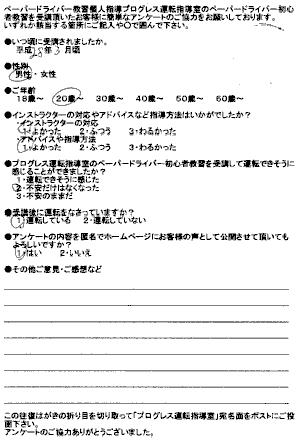 ペーパードライバー教習個人指導プログレス運転指導室のペーパードライバー初心
者教習を受講頂いたお客様に簡単なアンケートのご協力をお願いしております。
いずれか該当する箇所にご記入や〇で囲んで下さい。
●いつ頃に受講されましたか。
平成25年3月頃
●性別
男性・女性
●ご年齢
18歳〜 20歳〜 30歳〜 40歳〜 50歳〜 60歳〜
●インストラクターの対応やアドバイスなど指導方法はいかがでしたか?
・インストラクターの対応
1・よかった 2・ふつう 3・わるかった
・アドバイスや指導方法
1・よかった 2・ふつう 3・わるかった
●プログレス運転指導室のペーパードライバー・初心者教習を受講して運転できそうに
感じることができましたか?
1・運転できそうに感じた
2・不安だけはなくなった
3・不安のままだ
●受講後に運転をなさっていますか?
1・運転している 2・運転していない
●アンケートの内容を匿名でホームページにお客様の声として公開させて頂いても
よろしいですか?
1・はい 2・いいえ
●その他ご意見・ご感想など
この往復はがきの折り目を切り取って「プログレス運転指導室」宛名面をポストにご投
函下さい。
アンケートのご協力ありがとうございました。